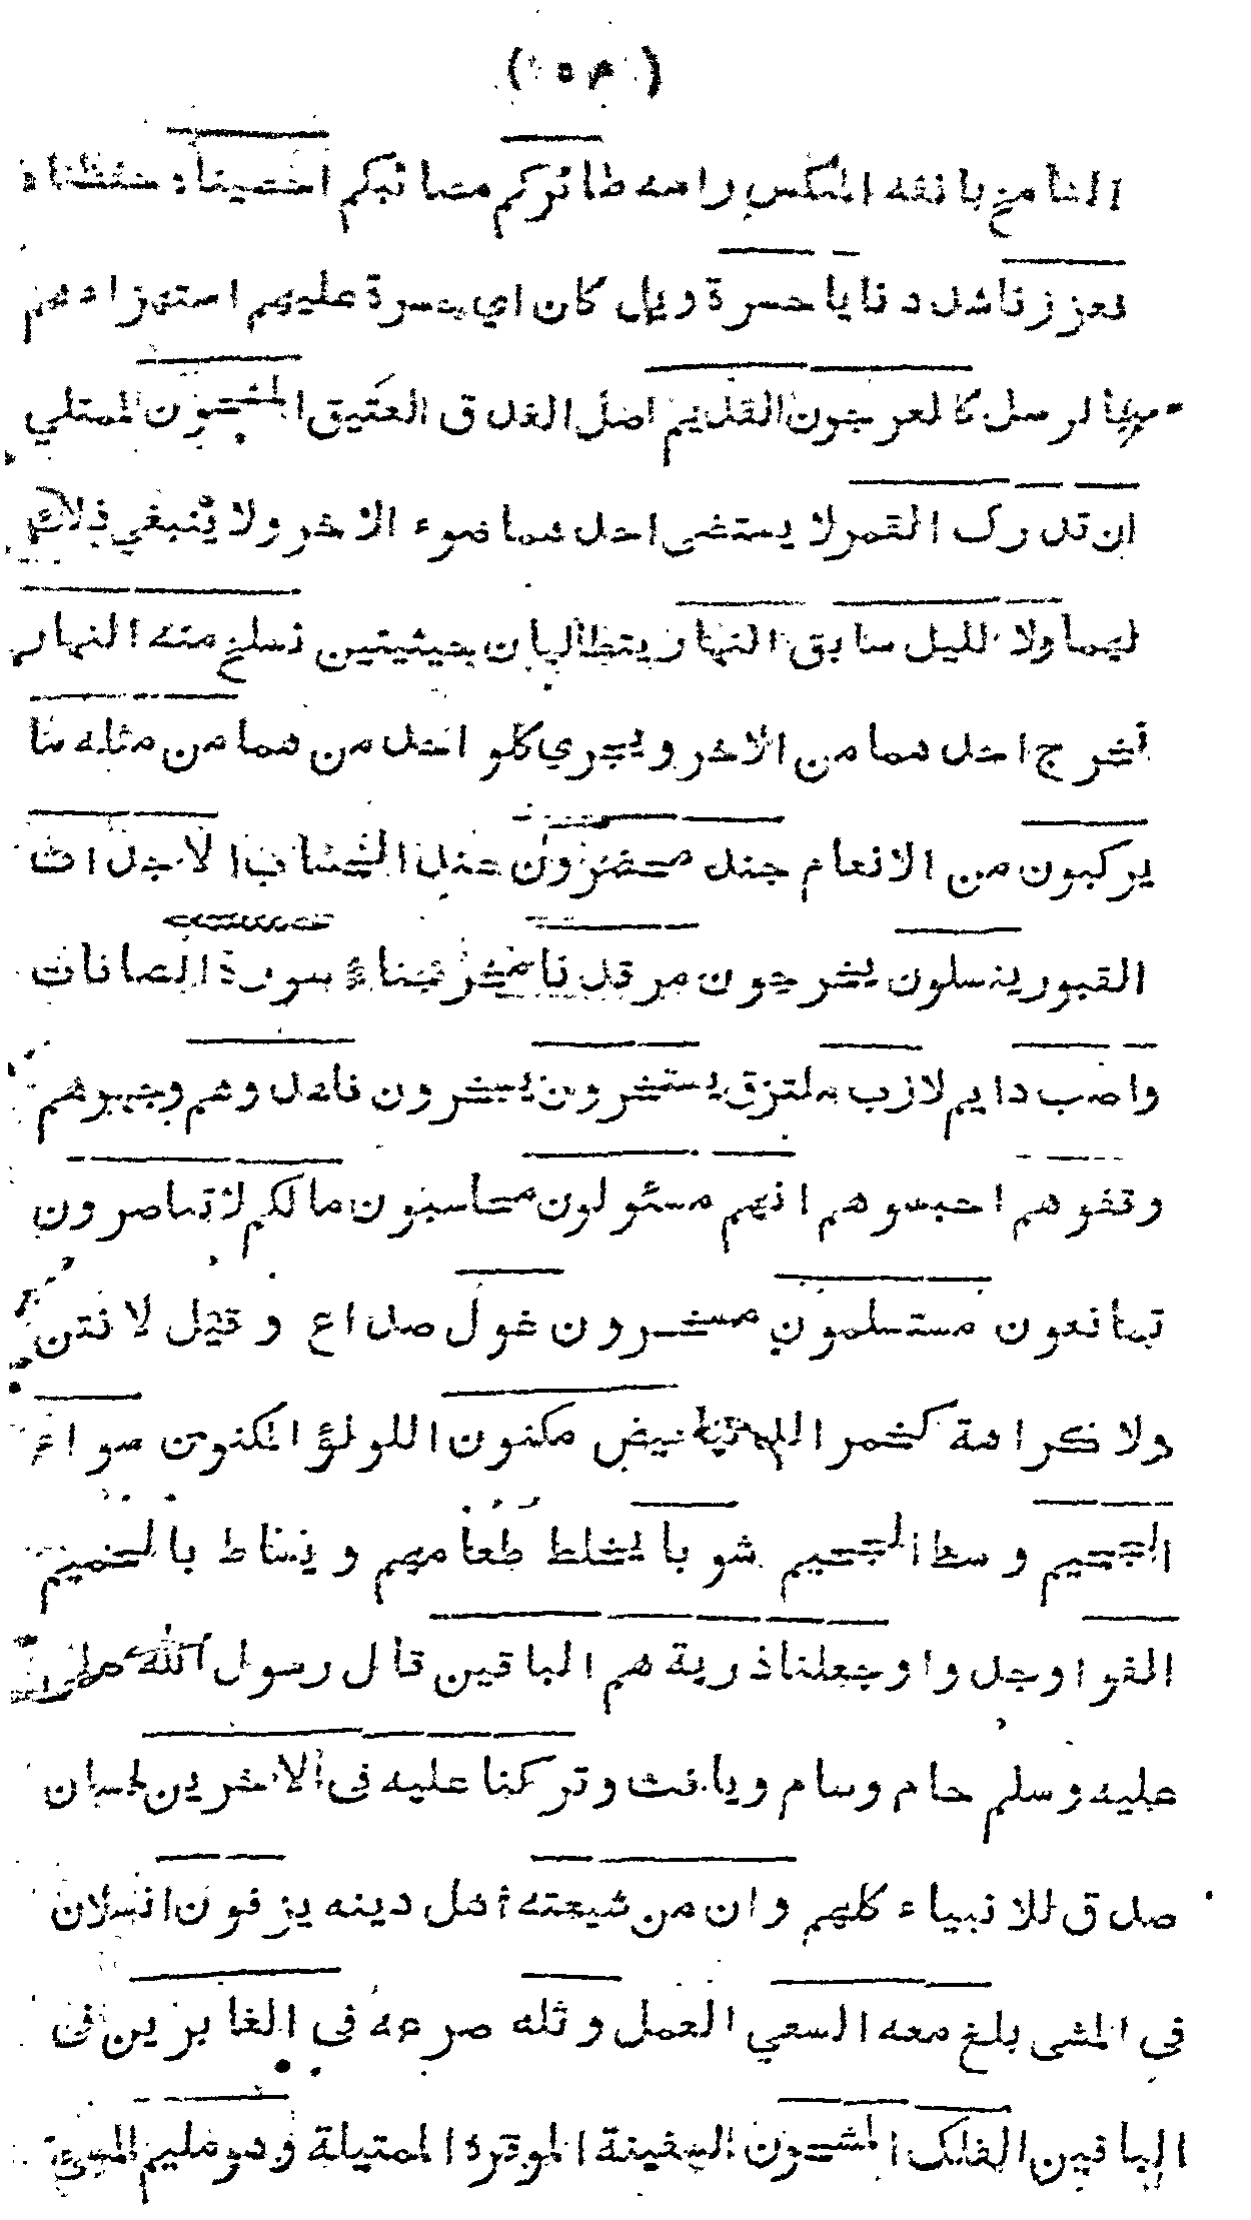 الشامخ بانفه المنكس راسه طائركم مصائبكم احصيناه حفظناه
فعززنا شددنا يا حسرة ويل كان اي حسرة عليهم استهزاءهم
بالرسل كالعرجون القديم اصل الغدق العتيق المشحون الممتلي
ان تدرك القمر لا يستضى احدهما ضوء الاخر ولا ينبغي ذلك
لهما ولا الليل سابق النهار يتطالبان حيثيتين نسلخ منه النهار
نخرج احدهما من الاخر ويجري كلو احد من هما من مثله ما
يركبون من الانعام جند محضرون عند الحساب الاجداث
القبور ينسلون يخرجون مرقدنا مخرجنا سورة الصافات
واصب دايم لازب ملتزق يستسخرون يسخرون فاهدوهم وجهوهم
وقفوهم احبسوهم انهم مسئولون محاسبون مالكم لا تناصرون
تمانعون مستسلمون مسخرون غول صداع وقيل لا نتن
ولا كراهة كخمر الدنيا بيض مكنون اللولؤ المكنون سواء
الجحيم وسط الجحيم شوبا يخلط طعامهم ويساط بالحميم
الفوا وجدوا وجعلنا ذرية هم الباقين قال رسول الله صلى
عليه وسلم حام وسام ويافث وتركنا عليه فى الاخرين لسان
صدق للانبياء كلهم وان من شيعته اهل دينه يزفون انسلان
فى المشى بلغ معه السعي العمل وتله صرعه فى الغابرين فى
الباقين الفلك المشحون السفينة الموقرة الممتيلة وهو مليم المسئ